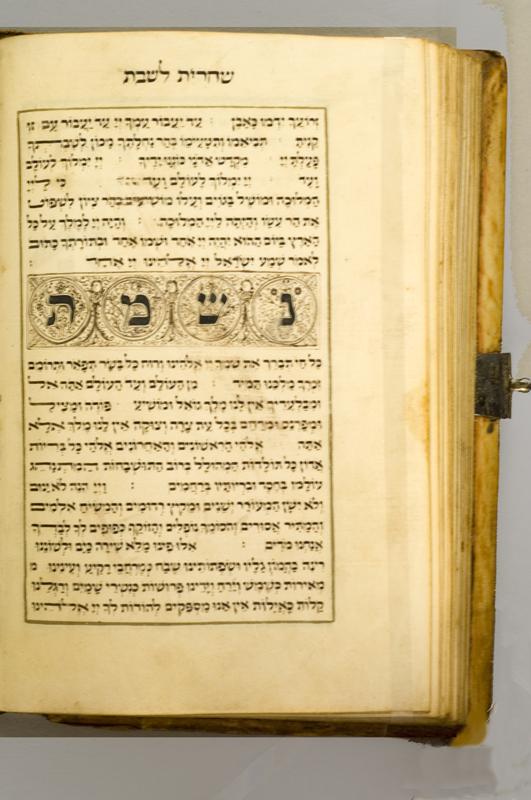 שחרית לשבת
זרועך ידמו כאבן : עד יעבור עמך יי עד יעבור עם זו
קנית תביאמו ותטעימו בהר נחלתך מכון לשבתך
פעלת יי מקדש אדני כוננו ידיך : יי ימלוך לעולם
ועד יי ימלוך לעולם ועד כי ליי
המלוכה ומושל בגוים ועלו מושיעים בהר ציון לשפוט
את הר עשו והיתה ליי המלוכה : והיה יי למלך על כל
הארץ ביום ההוא יהיה יי אחד ושמו אחד ובתורתך כתוב
לאמר שמע ישראל יי אלהינו יי אחד :
נשמת
כל חי תברך את שמך יי אלהינו ורוח כל בשר תפאר ותרומם
זכרך מלכנו תמיד : מן העולם ועד העולם אתה אל
ומבלעדיך אין לנו מלך גואל ומושיע פודה ומציל
ומפרנס ומרחם בכל עת צרה וצוקה אין לנו מלך אלא
אתה אלהי הראשונים והאחרונים אלהי כל בריות
אדון כל תולדות המהולל ברוב התושבחות המנהג
עולמו בחסד ובריותיו ברחמים : ויי הנה לא ינום
ולא יישן המעורר ישנים והמקיץ רדומים והמשיח אלמים
והמתיר אסורים והסומך נופלים והזוקף כפופים לך לבדך
אנחנו מודים : אלו פינו מלא שירה כים ולשוננו
רינה כהמון גליו ושפתותינו שבח כמרחבי רקיע ועינינו מ
מאירות כשמש וירח וידינו פרושות כנשרי שמים ורגלינו
קלות כאיילות אין אנו מספקים להודות לך יי אלהינו